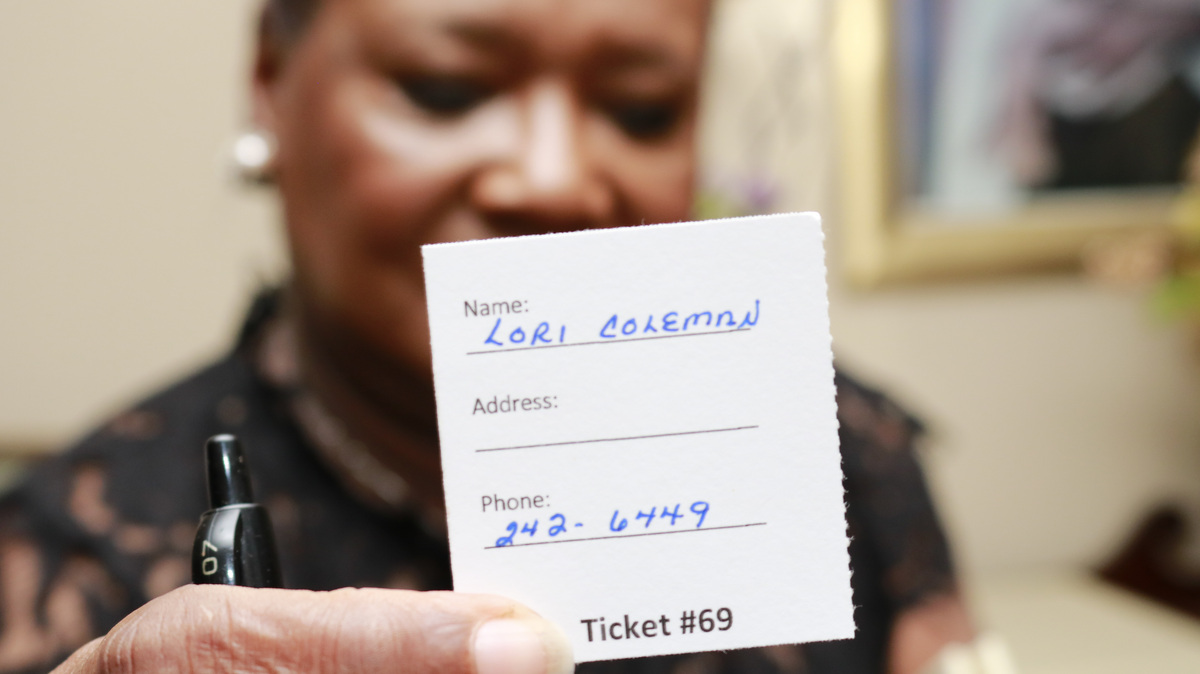 Name:
LORI COLEMAN
Address:
Phone:
242- 6449
Ticket #69
07